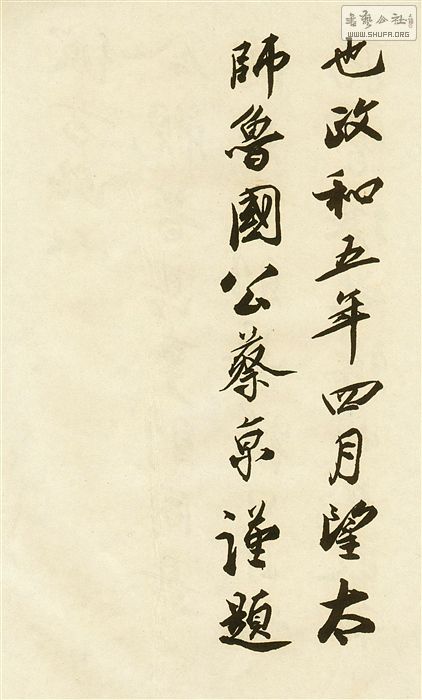 書藝公社
WWW.SHUFA.ORG
也政和五年四月望太
師魯國公蔡京謹題